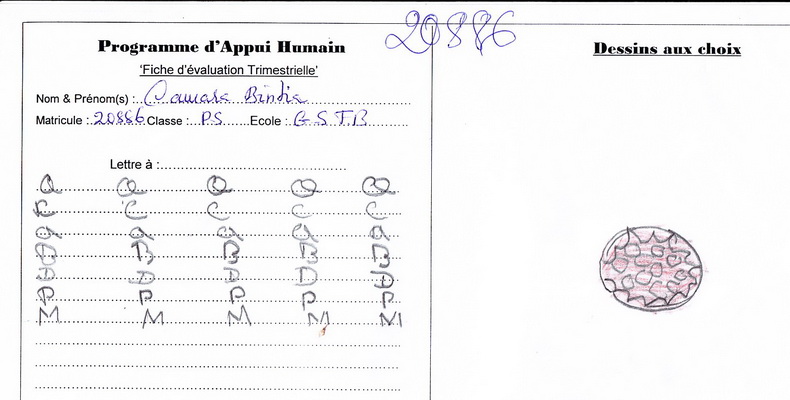 20886
Programme d'Appui Humain
Dessins aux choix
'Fiche d'évaluation Trimestrielle'
Nom & Prénom(s) : Camara Bintia
Matricule : 20886 Classe : PS Ecole : G.S.T.B
Lettre à :
a a a a a
C C C C C
g g g g g
B B B B B
D D D D D
P P P P P
M M M M M